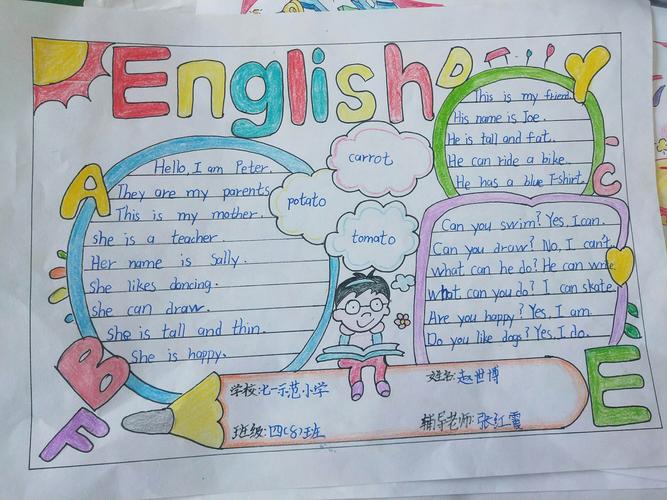 English
D
Y
A
C
B
F
E
Hello, I am Peter.
They are my parents
This is my mother.
she is a teacher.
Her name is Sally.
She likes dancing.
she can draw.
She is tall and thin.
She is happy.
carrot
potato
tomato
This is my friend.
His name is Joe.
He is tall and fat.
He can ride a bike.
He has a blue T-shirt.
Can you swim? Yes, I can.
Can you draw? No, I can't
what can he do? He can write
what can you do? I can skate
Are you happy? Yes, I am.
Do you like dogs? Yes, I do.
学校:化一示范小学
姓名:赵世博
班级:四(8)班
辅导老师:张红霞